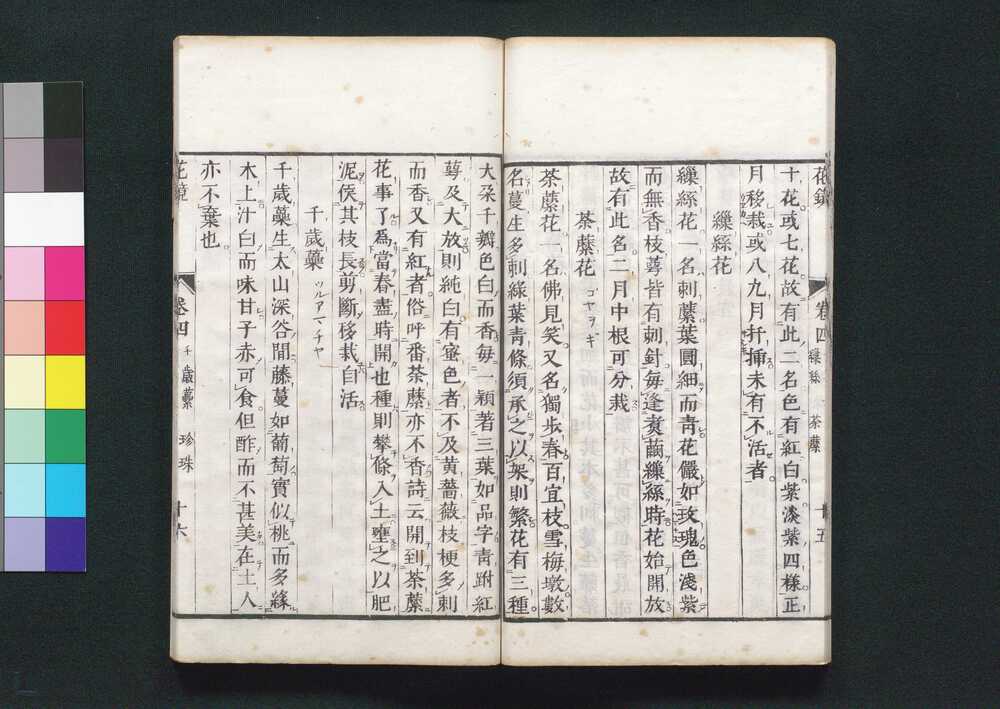 花鏡 卷四 繅絲 荼蘼 十五
十花或七花故有此二名色有紅白紫淡紫四樣正
月移栽或八九月扦揷未有不活者
繅絲花
繅絲花一名刺蘼葉圓細而靑花儼如玫瑰色淺紫
而無香枝萼皆有刺針每逢煑繭繅絲時花始開放
故有此名二月中根可分栽
荼蘼花 ゴヤヲギ
荼蘼花一名佛見笑又名獨步春百宜枝雪梅墩數
名蔓生多刺綠葉靑條須承之以架則繁花有三種
大朶千瓣色白而香每一穎著三葉如品字靑跗紅
萼及大放則純白有蜜色者不及黃薔薇枝梗多刺
而香又有紅者俗呼番荼蘼亦不香詩云開到荼蘼
花事了爲當春盡時開也種則攀條入土壅之以肥
泥俟其枝長剪斷移栽自活
千歲蘽 ツルアマチヤ
千歲蘽生太山深谷間藤蔓如葡萄實似桃而多緣
木上汁白而味甘子赤可食但酢而不甚美在土人
亦不棄也
花鏡 卷四 千歲蘽 珍珠 十六